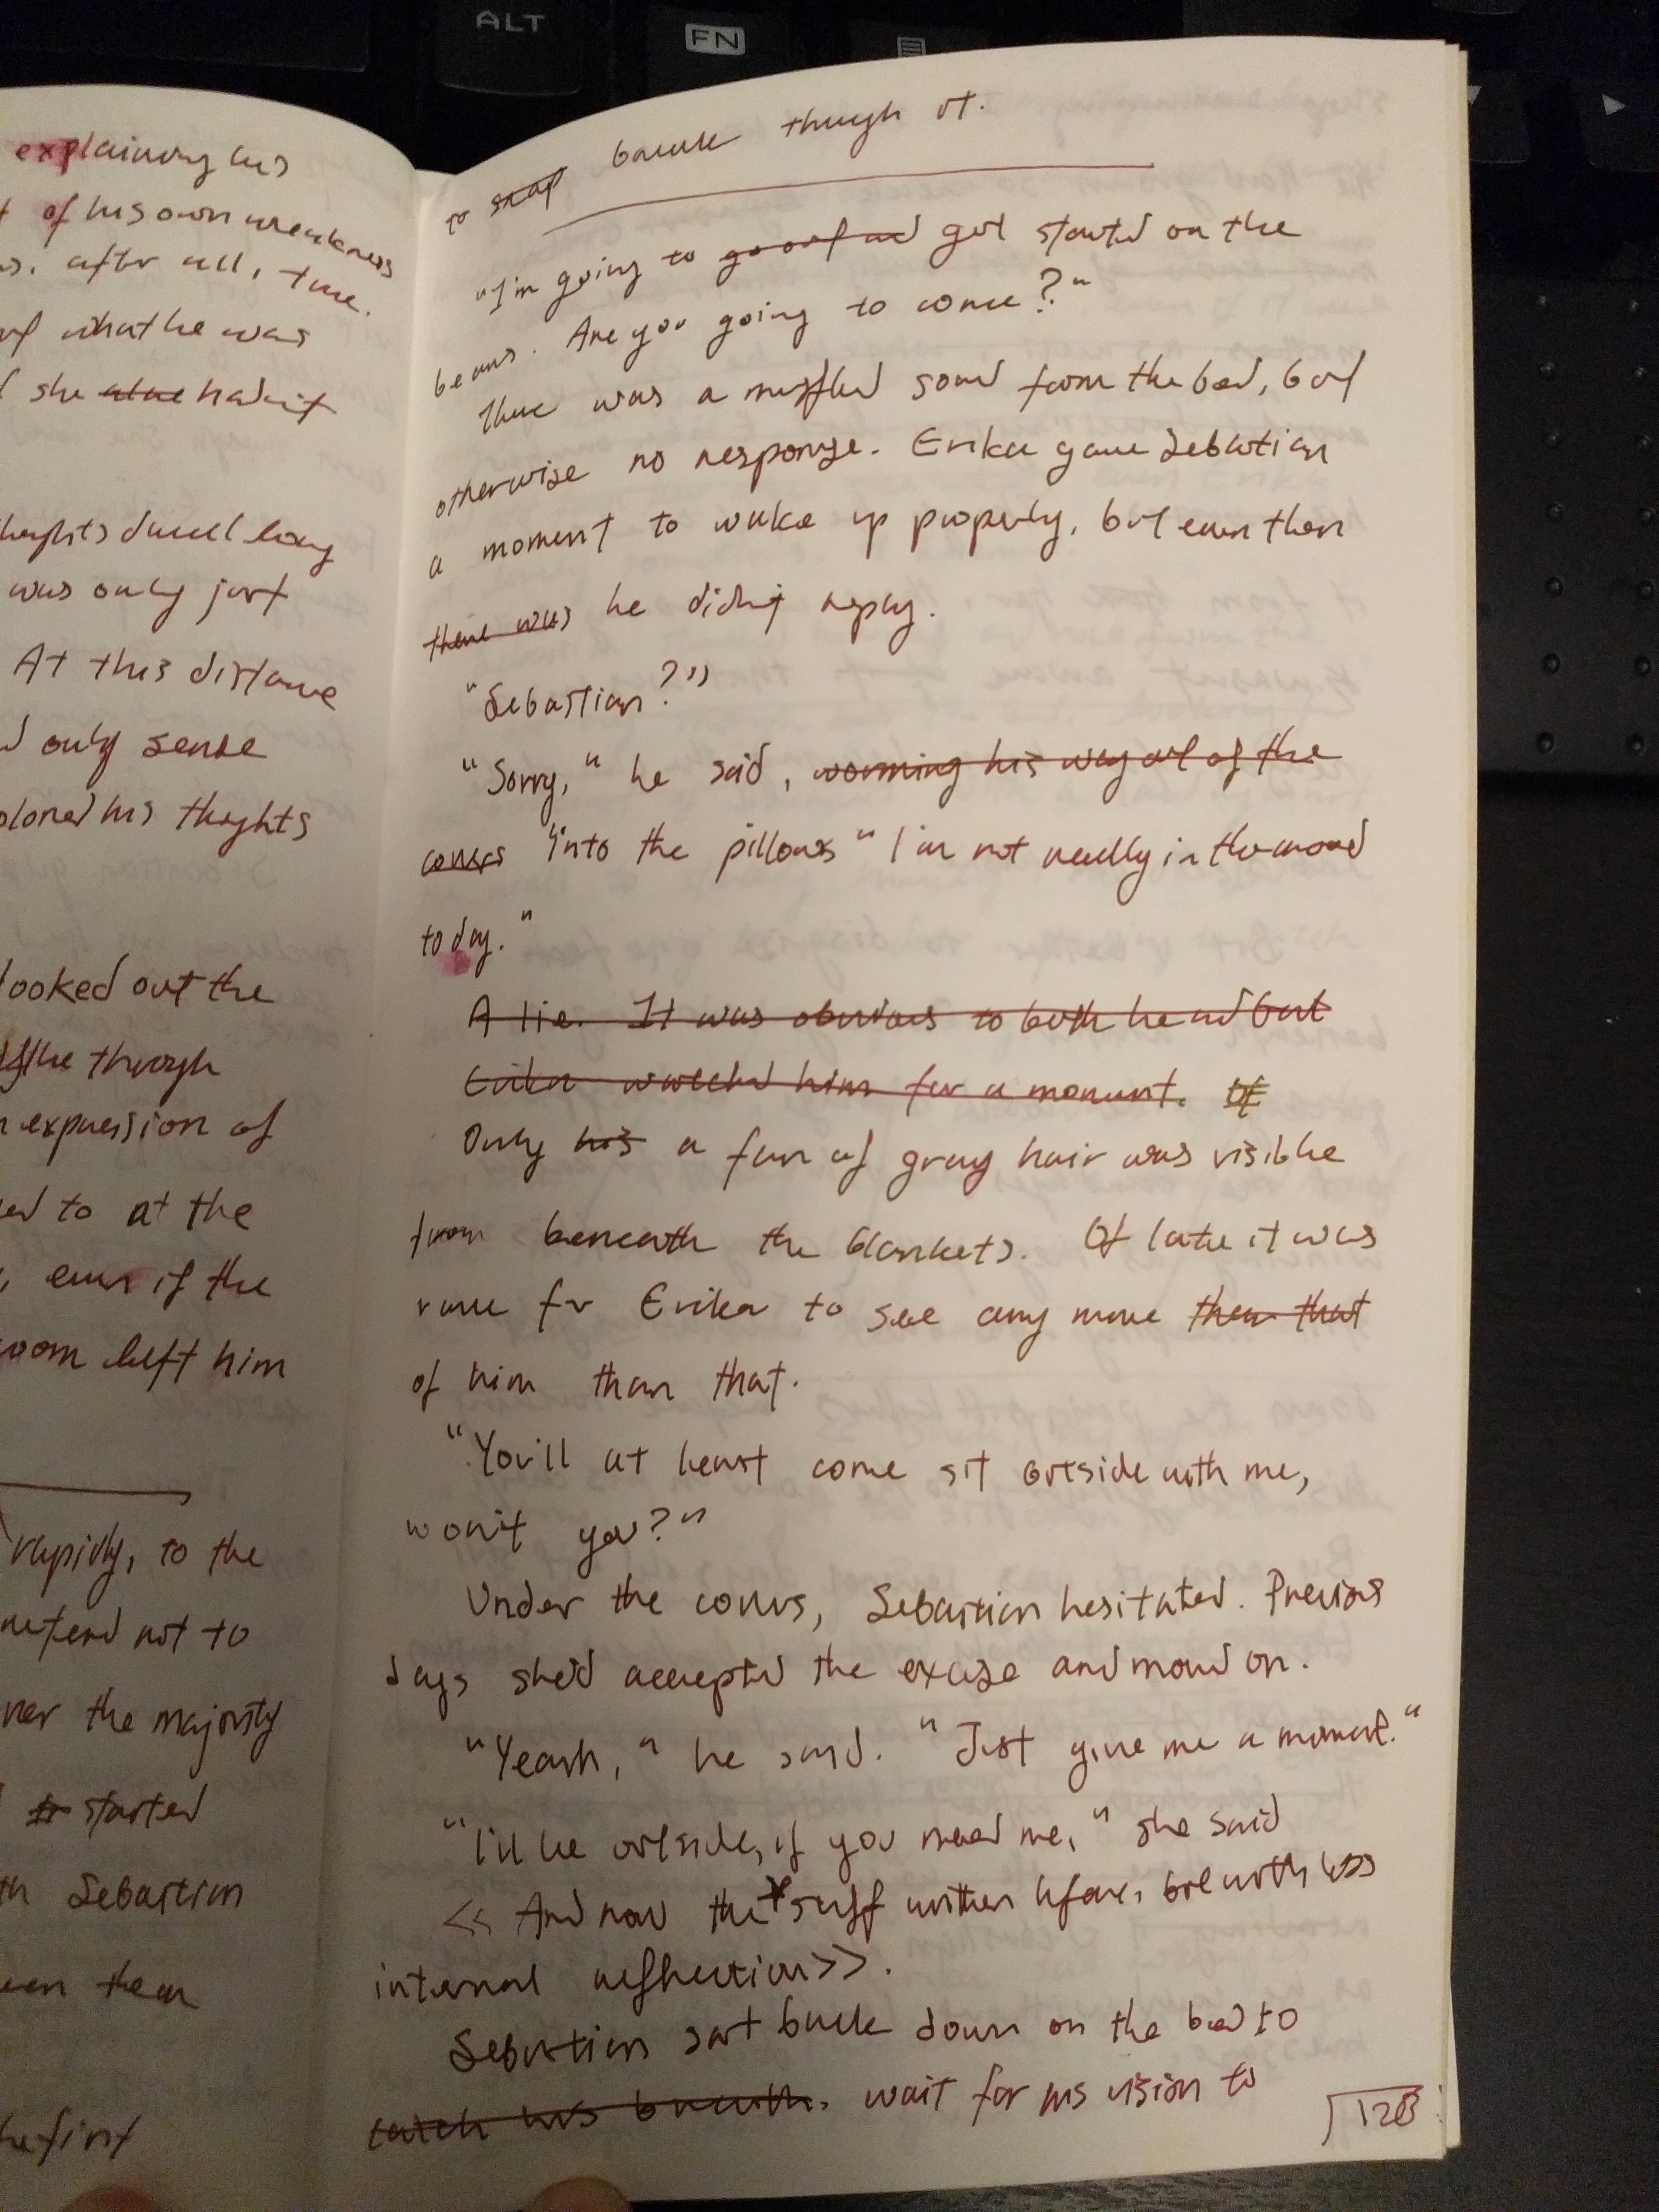 ALT
FN
explaining his
of his own weakness
after all, true.
of what he was
she hadn't
thoughts dwell long
was only just
At this distance
only sense
his thoughts
looked out the
the through
expression of
to at the
even if the
room left him
rapidly, to the
pretend not to
over the majority
to started
Sebastian
even then
to snap back though it.
"I'm going to go out and get started on the
beans. Are you going to come?"
There was a muffled sound from the bed, but
otherwise no response. Erika gave Sebastian
a moment to wake up properly, but even then
there was he didn't reply.
"Sebastian?"
"Sorry," he said, worming his way out of the
covers into the pillows "I'm not really in the mood
today."
A lie. It was obvious to both he and but
Erika watched him for a moment. Of
Only his a fan of gray hair was visible
from beneath the blankets. Of late it was
rare for Erika to see any more than that
of him than that.
"You'll at least come sit outside with me,
won't you?"
Under the covers, Sebastian hesitated. Previous
days she'd accepted the excuse and moved on.
"Yeah," he said. "Just give me a moment."
"I'll be outside, if you need me," she said
<< And now the stuff written before, but with less
internal reflection>>.
Sebastian sat back down on the bed to
catch his breath. wait for his vision to
128